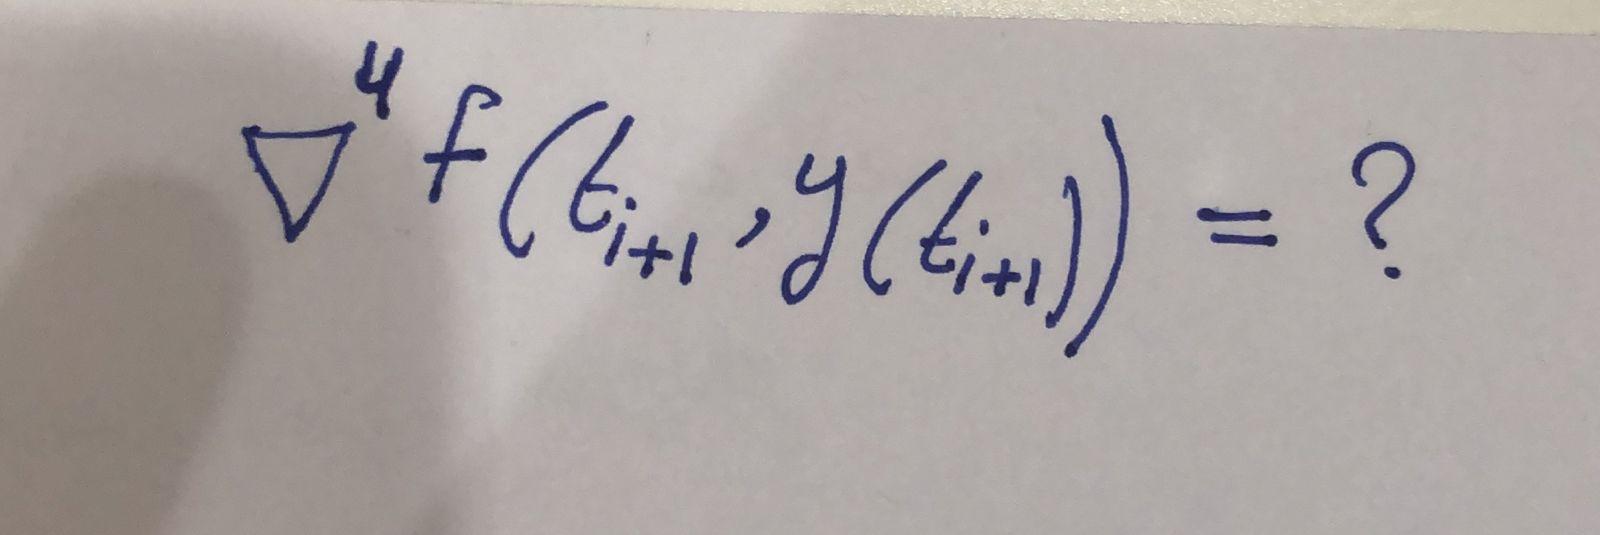 ∇⁴ f(t_{i+1}, y(t_{i+1})) = ?